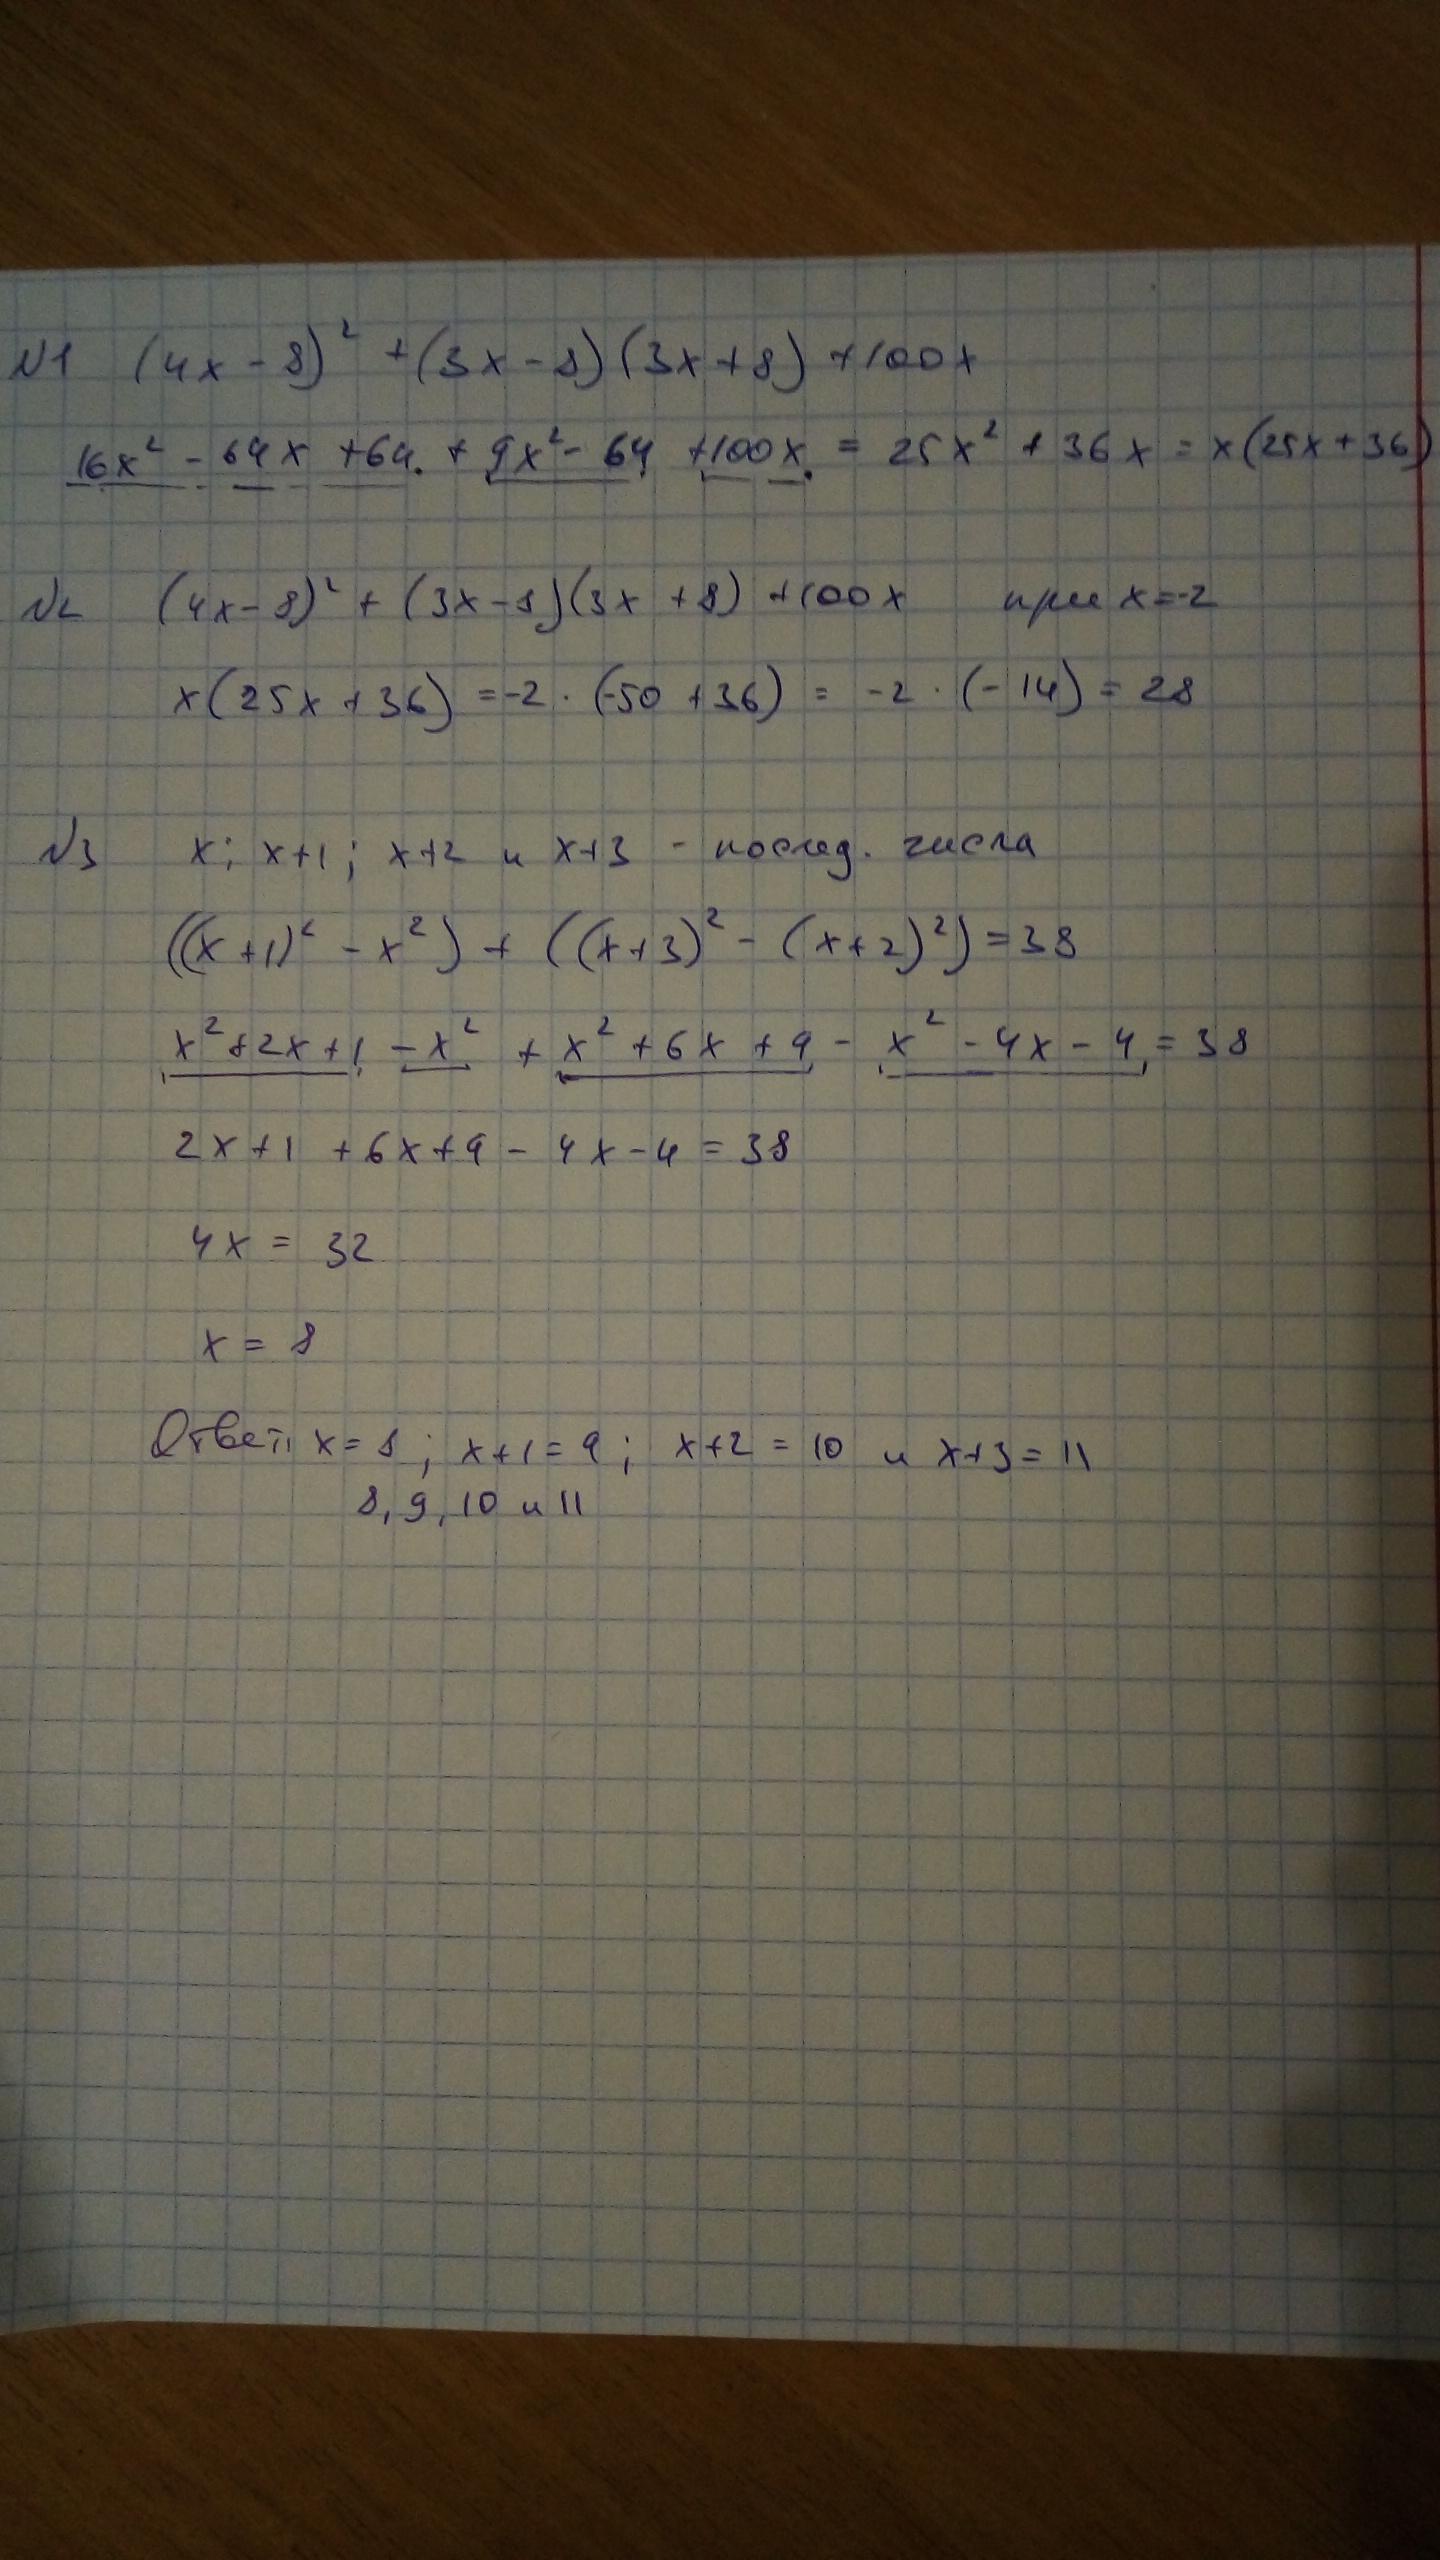 №1 (4x - 8)² + (3x - 8)(3x + 8) + 100x
16x² - 64x + 64 + 9x² - 64 + 100x = 25x² + 36x = x(25x + 36)
№2 (4x - 8)² + (3x - 8)(3x + 8) + 100x при x = -2
x(25x + 36) = -2 · (-50 + 36) = -2 · (-14) = 28
№3 x; x+1; x+2 и x+3 - послед. числа
((x+1)² - x²) + ((x+3)² - (x+2)²) = 38
x² + 2x + 1 - x² + x² + 6x + 9 - x² - 4x - 4 = 38
2x + 1 + 6x + 9 - 4x - 4 = 38
4x = 32
x = 8
Ответ: x = 8; x+1 = 9; x+2 = 10 и x+3 = 11
8, 9, 10 и 11